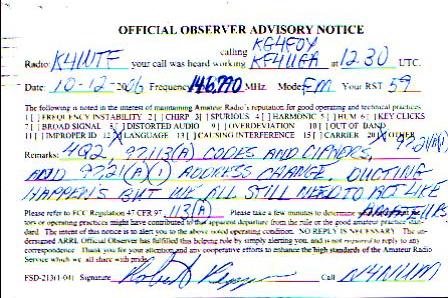 OFFICIAL OBSERVER ADVISORY NOTICE
calling KG4FOY
Radio: K4WTF your call was heard working KF4UEA at 1230 UTC.
Date: 10-12-2006 Frequency 146.790 MHz Mode FM Your RST 59
The following is noted in the interest of maintaining Amateur Radio's reputation for good operating and technical practices
1 [ ] FREQUENCY INSTABILITY 2 [ ] CHIRP 3 [ ] SPURIOUS 4 [ ] HARMONIC 5 [ ] HUM 6 [ ] KEY CLICKS
7 [ ] BROAD SIGNAL 8 [ ] DISTORTED AUDIO 9 [ ] OVERDEVIATION 10 [ ] OUT OF BAND
11 [ ] IMPROPER ID 12 [X] LANGUAGE 13 [ ] CAUSING INTERFERENCE 15 [ ] CARRIER 20 [X] OTHER 97.21(A)(1)
Remarks: 4Q2, 97.113(A) CODES AND CIPHERS,
AND 97.21(A)(1) ADDRESS CHANGE. DUCTING
HAPPENS BUT WE ALL STILL NEED TO ACT LIKE
Please refer to FCC Regulation 47 CFR 97. 113(A) Please take a few minutes to determine
tors or operating practices might have contributed to an apparent departure from the rule or the good
dard. The intent of this notice is to alert you to the above noted operating condition. NO REPLY IS NECESSARY. The un-
dersigned ARRL Official Observer has fulfilled this helping role by simply alerting you, and is not required to reply to any
correspondence. Thank you for your attention and any cooperative efforts to enhance the high standards of the Amateur Radio
Service which we all share with pride.
FSD-213(1-04) Signature Call N4NUM